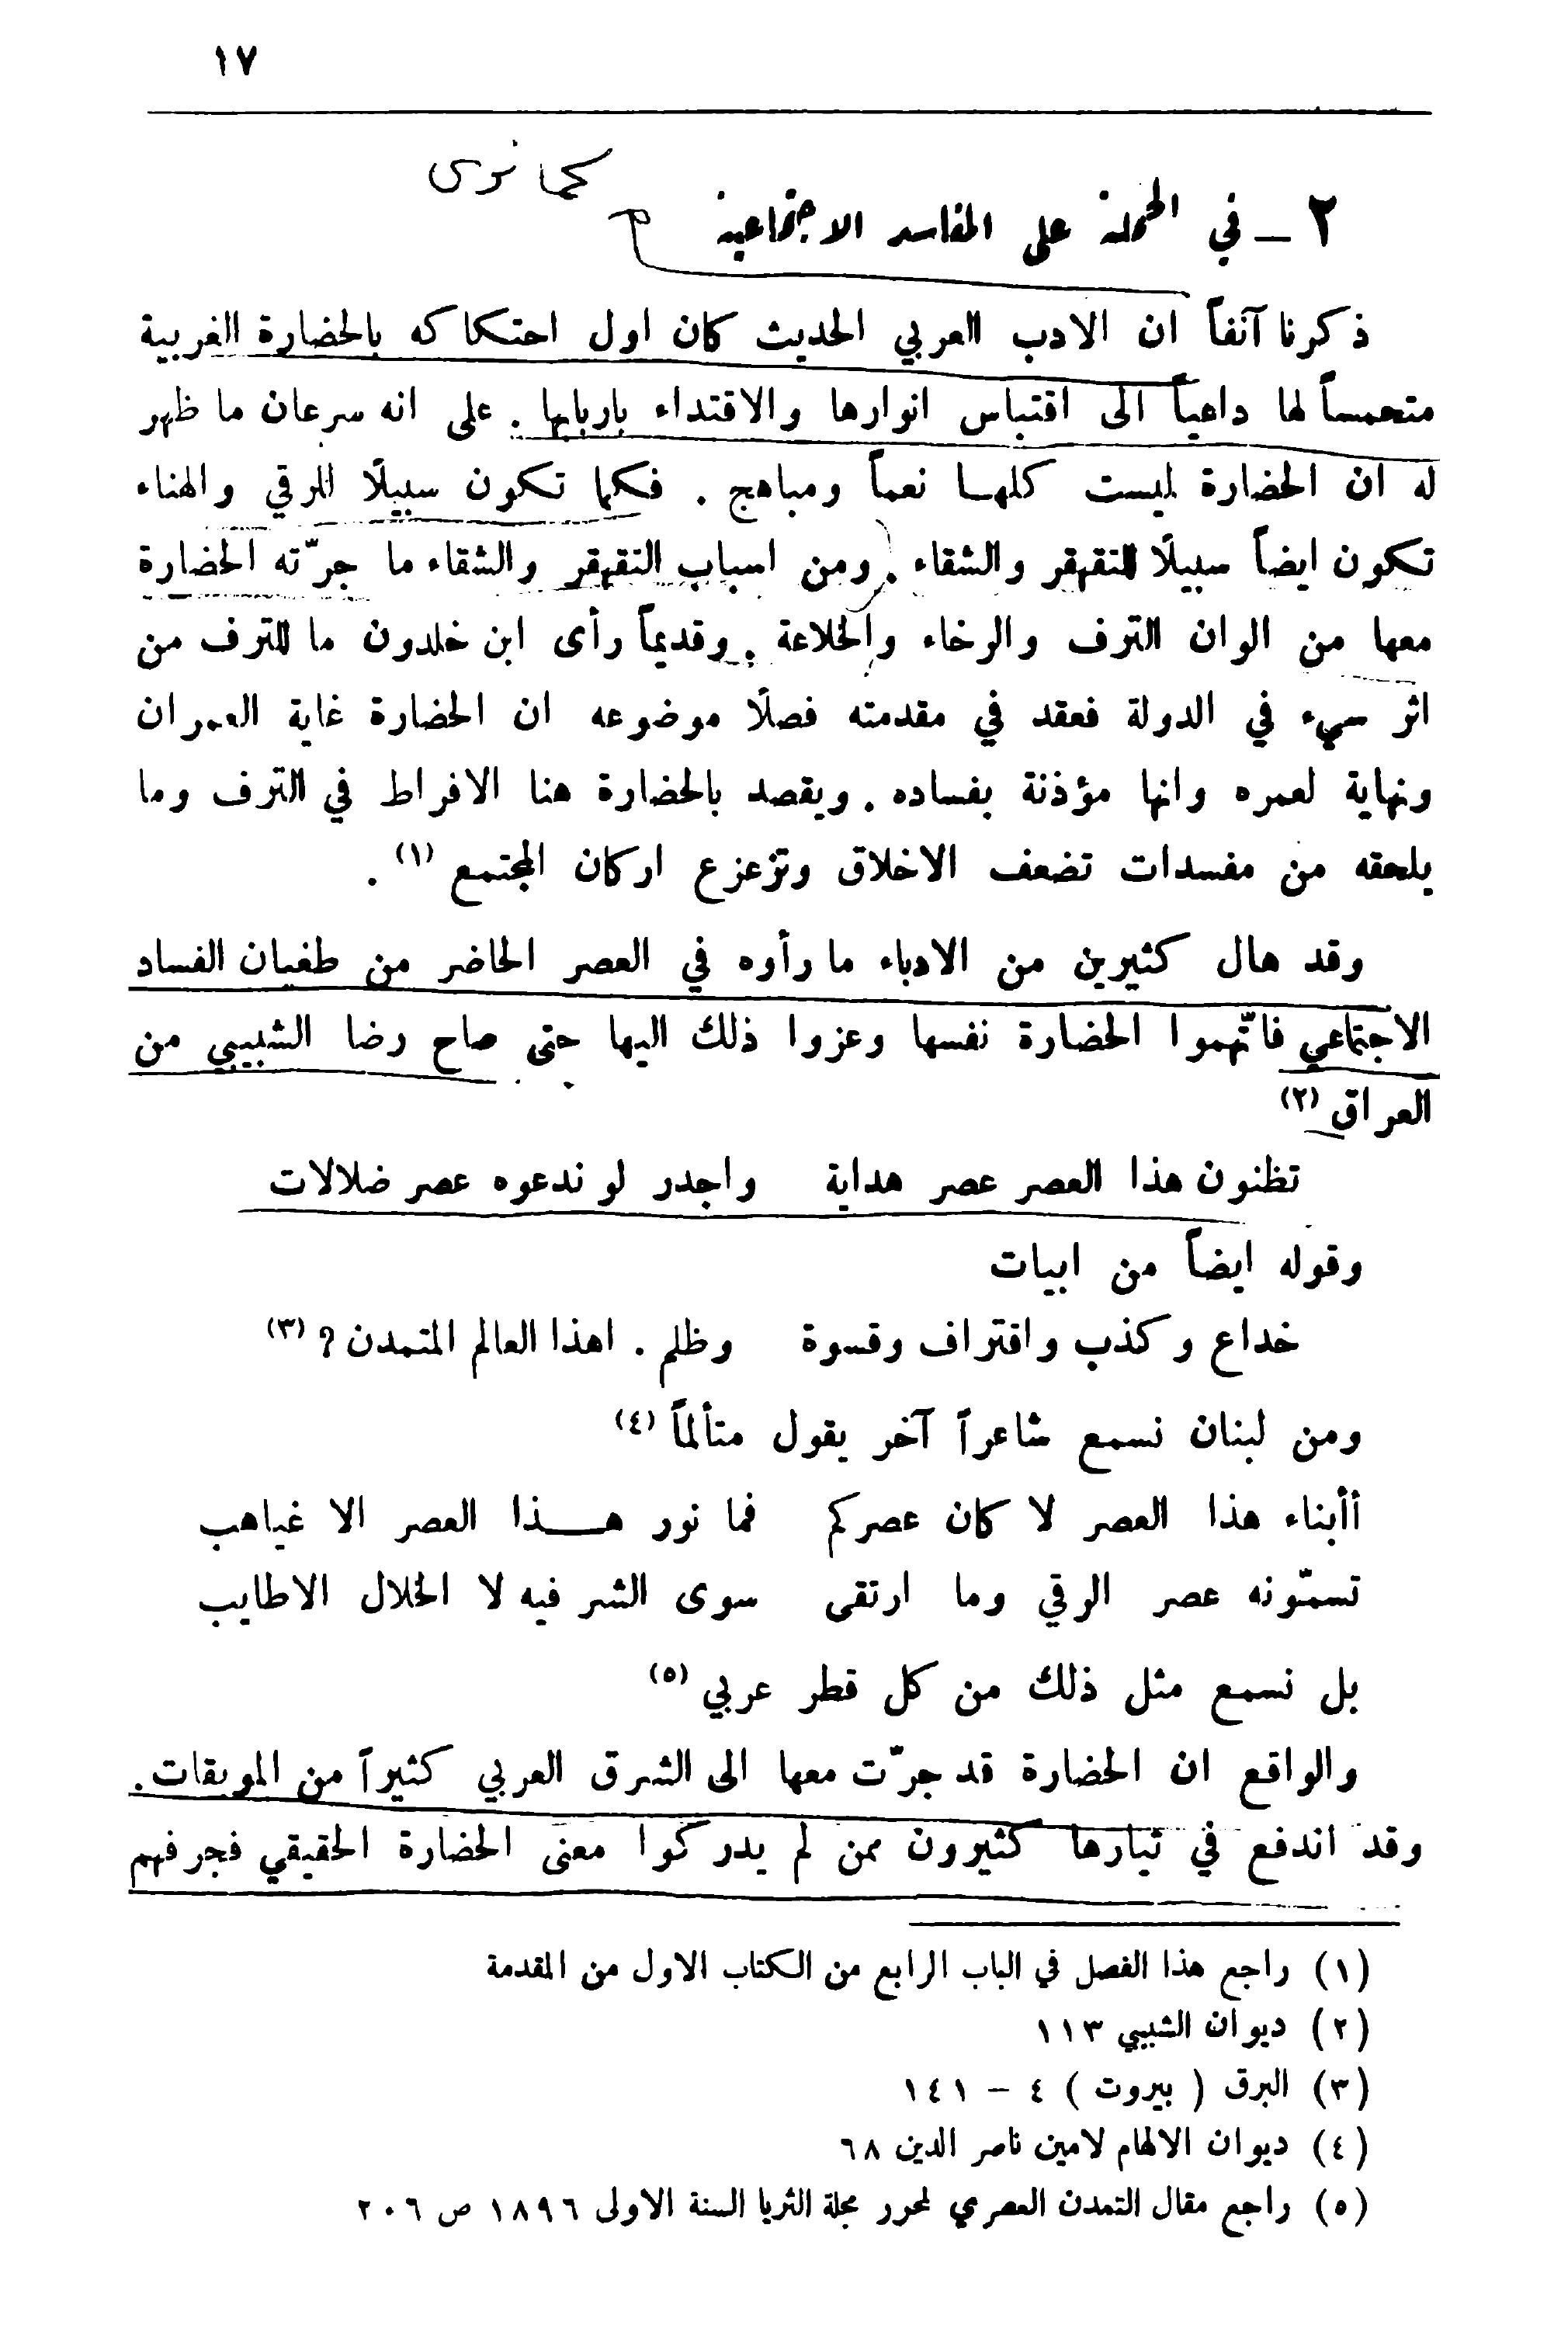 ١٧
٢ – في الحملة على المفاسد الاجتماعية
ذكرنا آنفاً ان الادب العربي الحديث كان اول احتكاكه بالحضارة الغربية
متحمساً لها داعياً الى اقتباس انوارها والاقتداء باربابها . على انه سرعان ما ظهر
له ان الحضارة ليست كلهـا نعماً ومباهج . فكما تكون سبيلًا للرقي والهناء
تكون ايضاً سبيلًا للتقهقر والشقاء . ومن اسباب التقهقر والشقاء ما جرّته الحضارة
معها من الوان الترف والرخاء والخلاعة . وقديماً رأى ابن خلدون ما للترف من
اثر سيء في الدولة فعقد في مقدمته فصلًا موضوعه ان الحضارة غاية العمران
ونهاية لعمره وانها مؤذنة بفساده . ويقصد بالحضارة هنا الافراط في الترف وما
يلحقه من مفسدات تضعف الاخلاق وتزعزع اركان المجتمع (١) .
وقد هال كثيرين من الادباء ما رأوه في العصر الحاضر من طغيان الفساد
الاجتماعي فاتّهموا الحضارة نفسها وعزوا ذلك اليها حتى صاح رضا الشبيبي من
العراق (٢)
تظنون هذا العصر عصر هداية واجدر لو ندعوه عصر ضلالات
وقوله ايضاً من ابيات
خداع وكذب واقتراف وقسوة وظلم . اهذا العالم المتمدن ؟ (٣)
ومن لبنان نسمع شاعراً آخر يقول متألماً (٤)
أأبناء هذا العصر لا كان عصركم فما نور هـــذا العصر الا غياهب
تسمّونه عصر الرقي وما ارتقى سوى الشر فيه لا الخلال الاطايب
بل نسمع مثل ذلك من كل قطر عربي (٥)
والواقع ان الحضارة قد جرّت معها الى الشرق العربي كثيراً من الموبقات .
وقد اندفع في تيارها كثيرون ممن لم يدركوا معنى الحضارة الحقيقي فجرفهم
(١) راجع هذا الفصل في الباب الرابع من الكتاب الاول من المقدمة
(٢) ديوان الشبيبي ١١٣
(٣) البرق ( بيروت ) ٤ – ١٤١
(٤) ديوان الالهام لامين ناصر الدين ٦٨
(٥) راجع مقال التمدن العصري لمحرر مجلة الثريا السنة الاولى ١٨٩٦ ص ٢٠٦